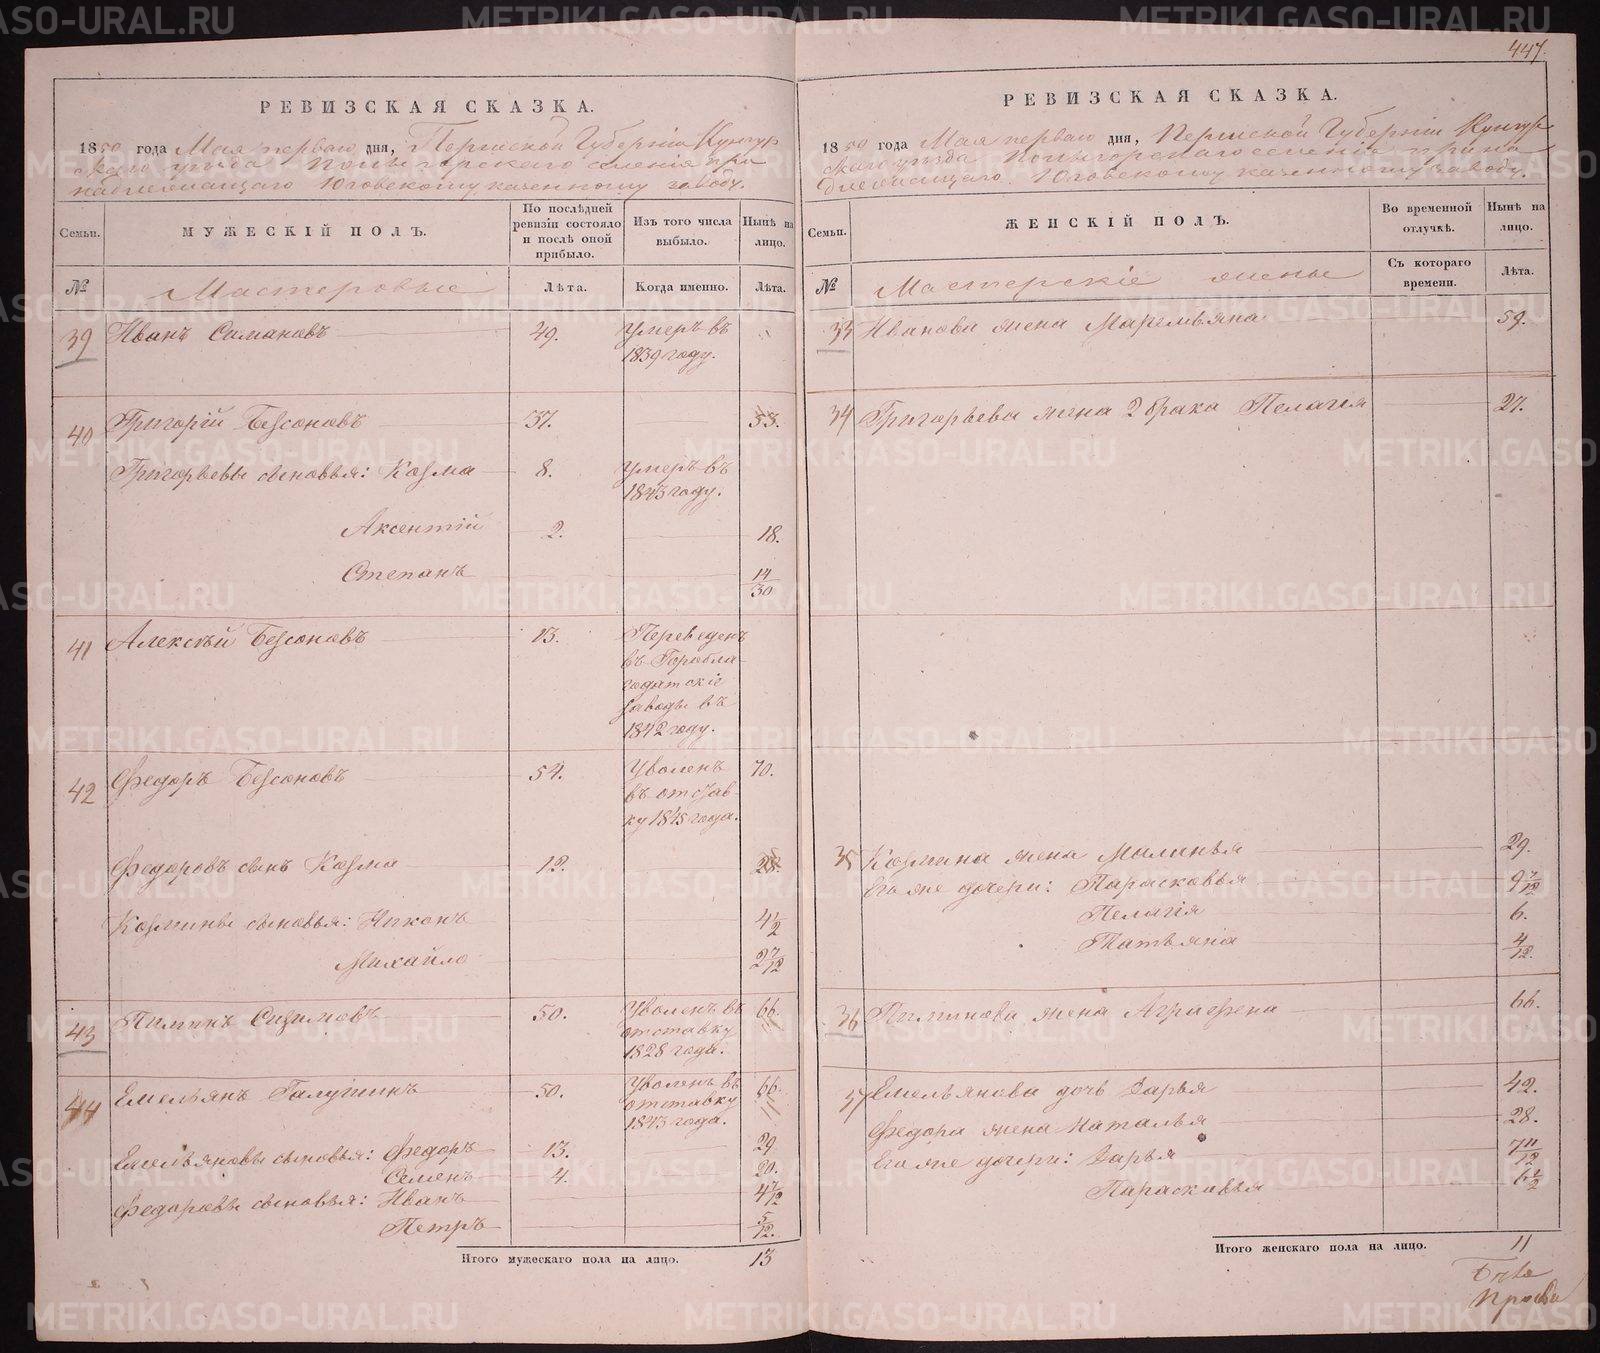 447.
РЕВИЗСКАЯ СКАЗКА.
1850 года Мая перваго дня, Пермской Губерніи Кунгур
скаго уѣзда селенія при
надлежащаго Юговскому казенному заводу.
Семьи.
МУЖЕСКІЙ ПОЛЪ.
По послѣдней
ревизіи состояло
и послѣ оной
прибыло.
Изъ того числа
выбыло.
Нынѣ на
лицо.
№
Мастеровые
Лѣта.
Когда именно.
Лѣта.
39 Иванъ 49. Умеръ въ
1839 году.
40 Григорій Безсоновъ 37. 53.
Григорьевы сыновья: Козма 8. Умеръ въ
1843 году.
Аксентій 2. 18.
Степанъ 14
30
41 Алексѣй Безсоновъ 13. Переведенъ
въ Горобла-
годатскіе
заводы въ
1842 году.
42 Федоръ Безсоновъ 54. Уволенъ 70.
въ отстав-
ку 1845 года.
Федоровъ сынъ Козма 12. 28.
Козмины сыновья: Никонъ 4 1/2
Михайло 2 7/12
43 Пиминъ 50. Уволенъ въ 66.
отставку
1828 года.
44 Емельянъ Галушинъ 50. Уволенъ въ 66.
отставку
1843 года.
Емельяновы сыновья: Федоръ 13. 29
Семенъ 4. 20.
Федоровы сыновья: Иванъ 4 7/12
Петръ 5/12.
Итого мужескаго пола на лицо. 13
РЕВИЗСКАЯ СКАЗКА.
1850 года Мая перваго дня, Пермской Губерніи Кунгур
скаго уѣзда селенія прина
длежащаго Юговскому казенному заводу.
Семьи.
ЖЕНСКІЙ ПОЛЪ.
Во временной
отлучкѣ.
Нынѣ на
лицо.
№
Мастерскіе жены
Съ котораго
времени.
Лѣта.
33 Иванова жена Маремьяна 59.
34 Григорьева жена 2 брака Пелагія 27.
35 Козмина жена Маланья 29.
Его же дочери: Парасковья 9 7/12
Пелагія 6.
Татьяна 4/12.
36 Пиминова жена Аграфена 66.
37 Емельянова дочь Дарья 42.
Федора жена Наталья 28.
Его же дочери: Дарья 7 11/12
Парасковья 6 1/2
Итого женскаго пола на лицо. 11
METRIKI.GASO-URAL.RU